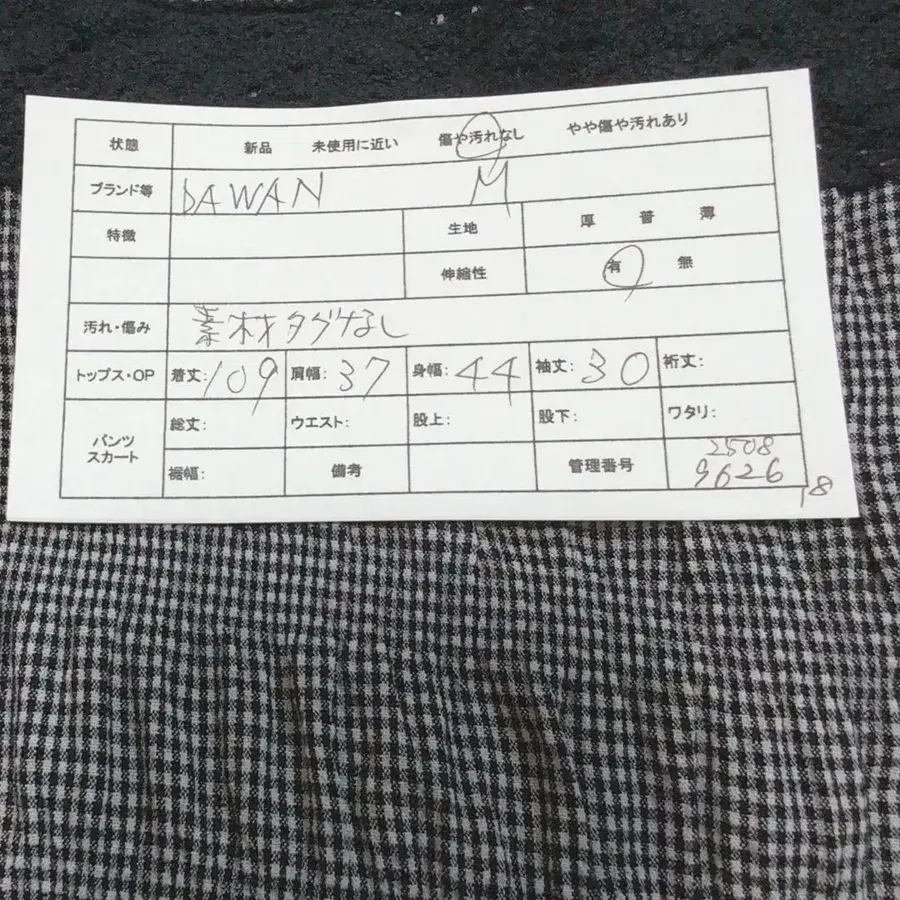 状態 新品 未使用に近い 傷や汚れなし やや傷や汚れあり
ブランド等 DAWAN M
特徴 生地 厚 普 薄
伸縮性 有 無
汚れ・傷み 素材タグなし
トップス・OP 着丈:109 肩幅:37 身幅:44 袖丈:30 裄丈:
パンツ スカート 総丈: ウエスト: 股上: 股下: ワタリ:
裾幅: 備考 管理番号 2508
9626
18